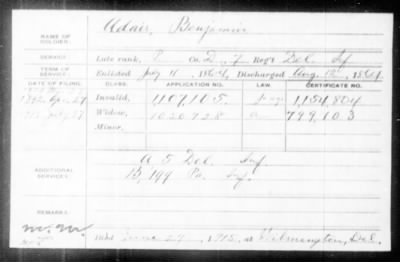 NAME OF SOLDIER: Adair, Benjamin
SERVICE: Late rank, P Co. D, 7 Reg't Del. Inf
TERM OF SERVICE: Enlisted July 11, 1864, Discharged Aug. 12, 1864
DATE OF FILING. CLASS. APPLICATION NO. LAW. CERTIFICATE NO.
Invalid, 1107105 1,154,804
Widow, 1020728 799,603
Minor,
ADDITIONAL SERVICES: A 5 Del. Inf.
B, 197 Pa. Inf.
REMARKS:
Died June 27, 1915, at Wilmington, Del.